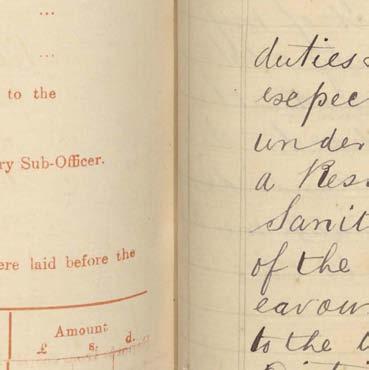 ...
...
to the
ry Sub-Officer.
ere laid before the
Amount
£ s. d.
duties
under
a Res
Sanit
of the
eavour
to the